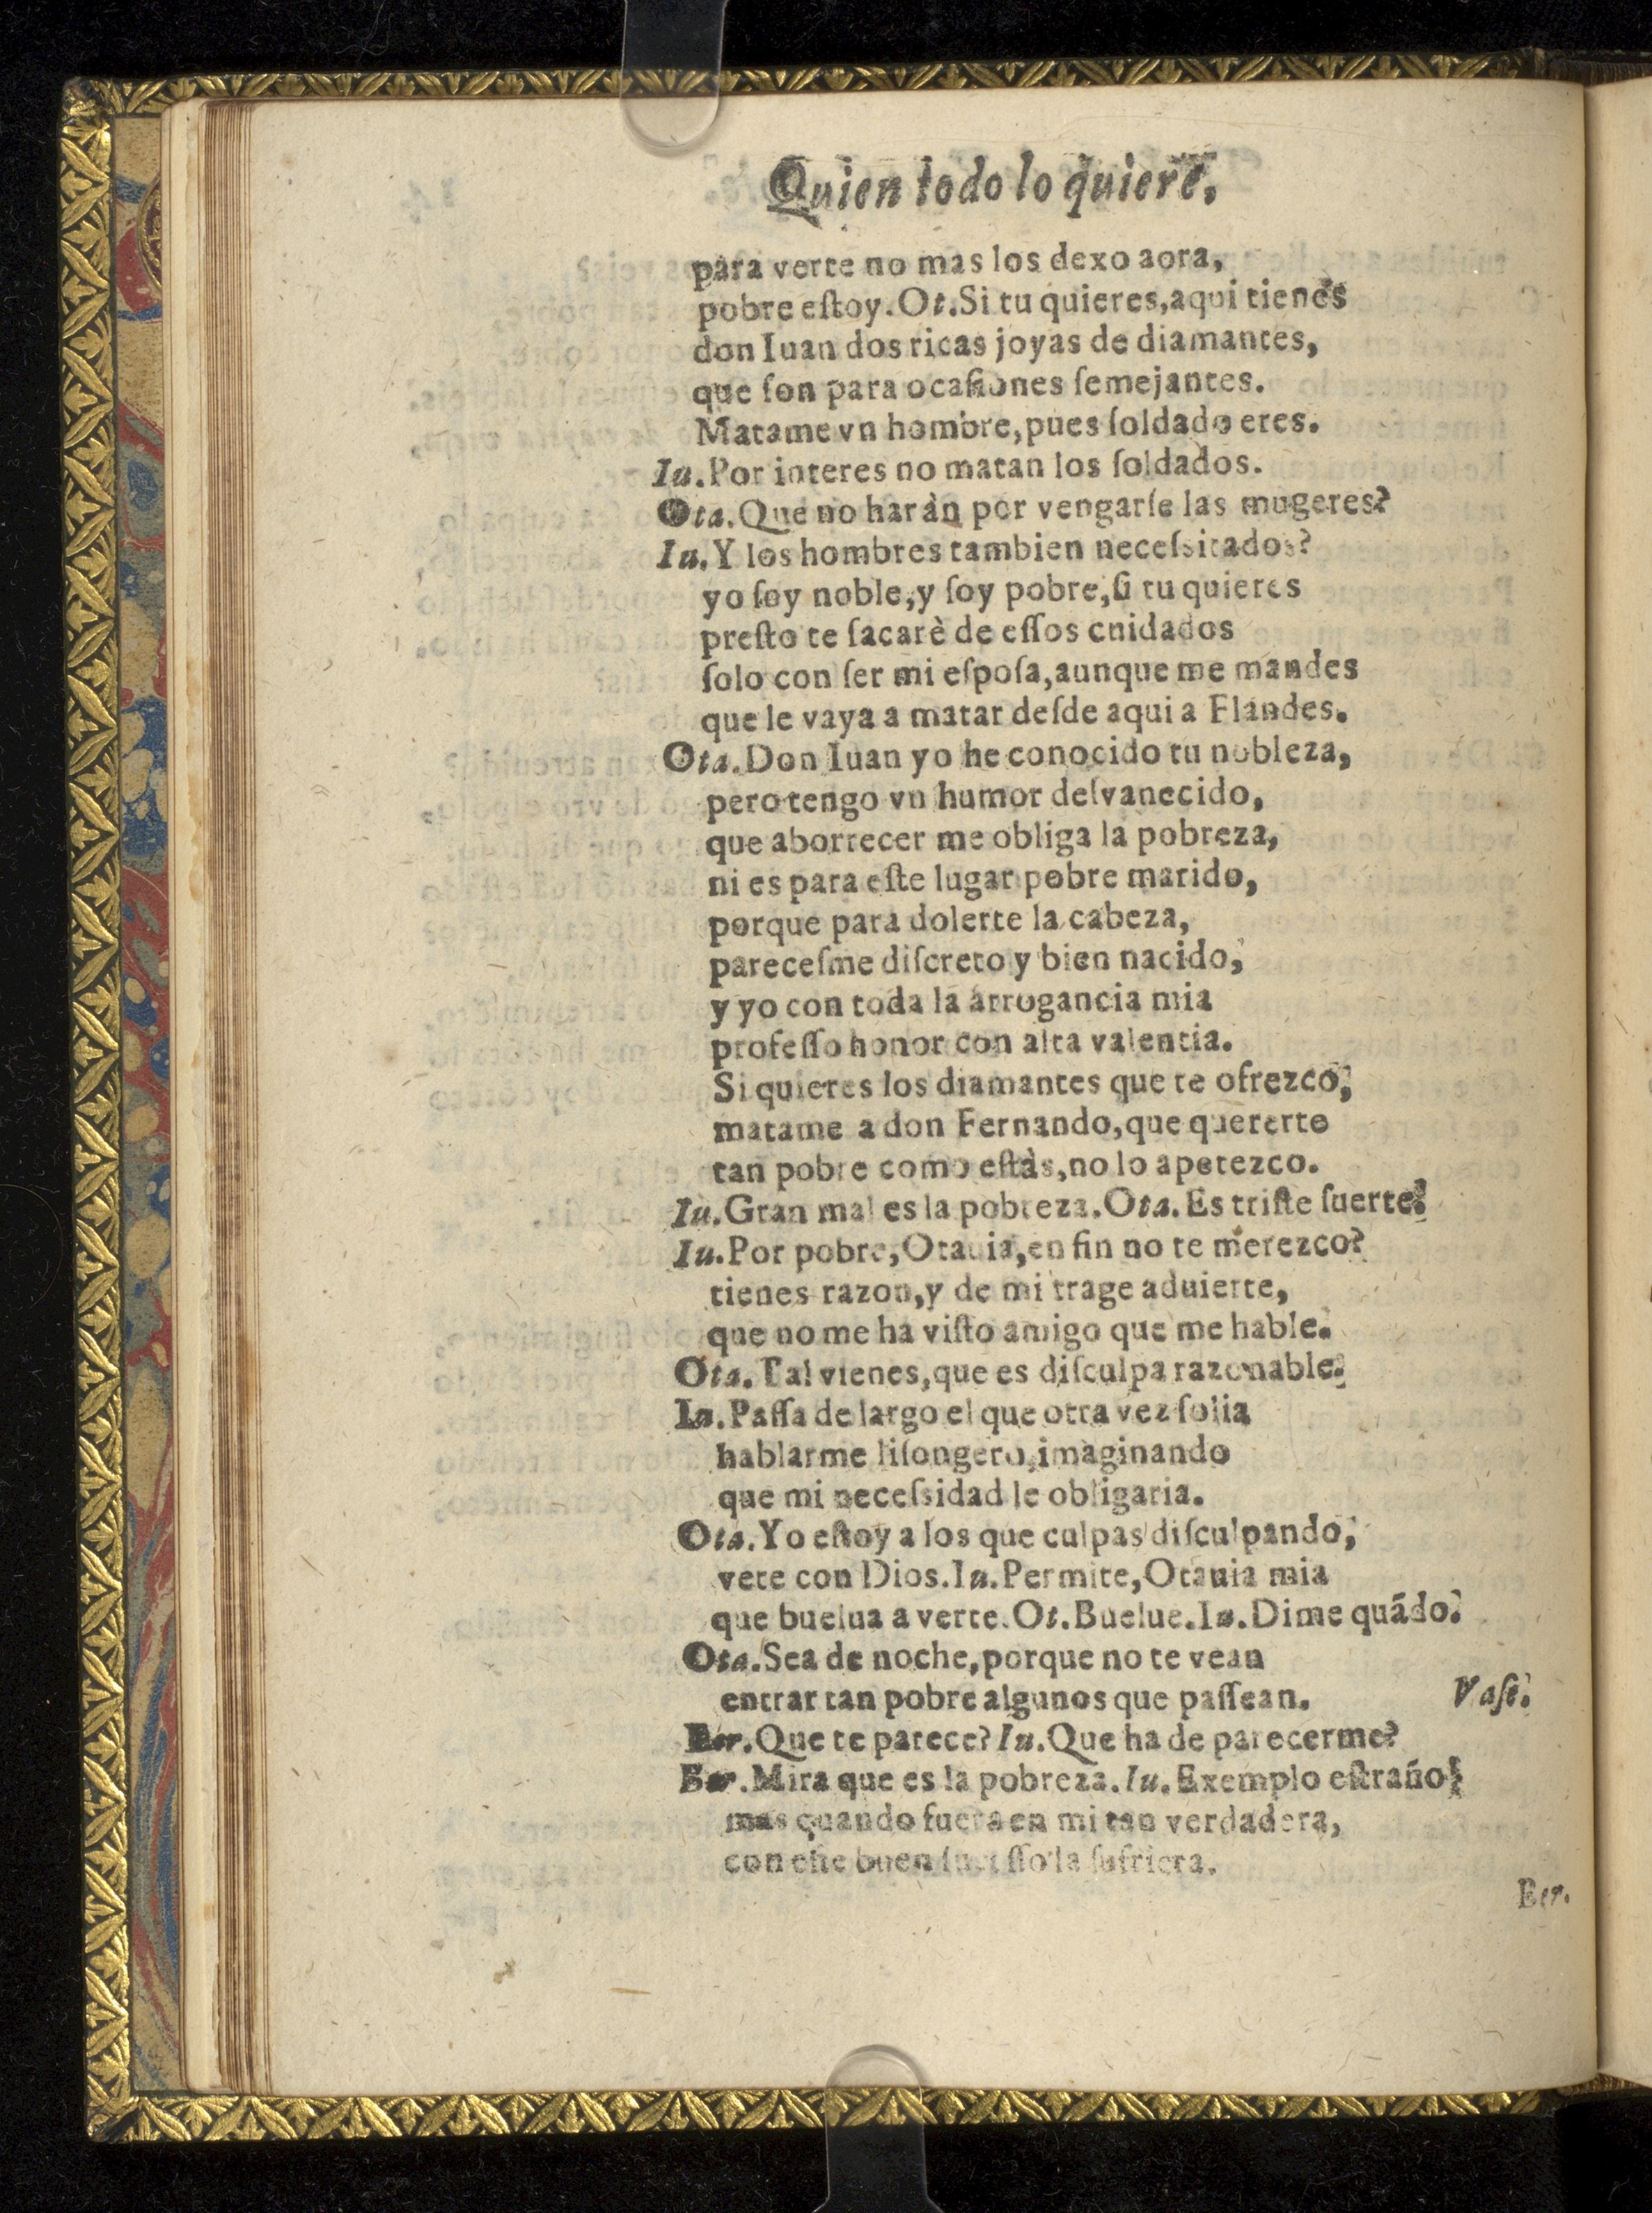 Quien todo lo quiere,
para verte no mas los dexo aora,
pobre eſtoy. Ot. Si tu quieres, aqui tienes
don Iuan dos ricas joyas de diamantes,
que ſon para ocaſiones ſemejantes.
Matame vn hombre, pues ſoldado eres.
Iu. Por interes no matan los ſoldados.
Ota. Que no haràn por vengarſe las mugeres?
Iu. Y los hombres tambien neceſsitados?
yo ſoy noble, y ſoy pobre, ſi tu quieres
preſto te ſacarè de eſſos cuidados
ſolo con ſer mi eſpoſa, aunque me mandes
que le vaya a matar deſde aqui a Flandes.
Ota. Don Iuan yo he conocido tu nobleza,
pero tengo vn humor deſvanecido,
que aborrecer me obliga la pobreza,
ni es para eſte lugar pobre marido,
porque para dolerte la cabeza,
pareceſme diſcreto y bien nacido,
y yo con toda la arrogancia mia
profeſſo honor con alta valentia.
Si quieres los diamantes que te ofrezco,
matame a don Fernando, que quererte
tan pobre como eſtàs, no lo apetezco.
Iu. Gran mal es la pobreza. Ota. Es triſte ſuerte.
Iu. Por pobre, Otauia, en fin no te merezco?
tienes razon, y de mi trage aduierte,
que no me ha viſto amigo que me hable.
Ota. Tal vienes, que es diſculpa razonable.
Iu. Paſſa de largo el que otra vez ſolia
hablarme liſongero, imaginando
que mi neceſsidad le obligaria.
Ota. Yo eſtoy a los que culpas diſculpando,
vete con Dios. Iu. Permite, Otauia mia
que buelua a verte. Ot. Buelue. Iu. Dime quãdo.
Ota. Sea de noche, porque no te vean
entrar tan pobre algunos que paſſean. Vaſe.
Ber. Que te parece? Iu. Que ha de parecerme?
Ber. Mira que es la pobreza. Iu. Exemplo eſtraño!
mas quando fuera en mi tan verdadera,
con eſte buen ſuceſſo la ſufriera.
Ber.